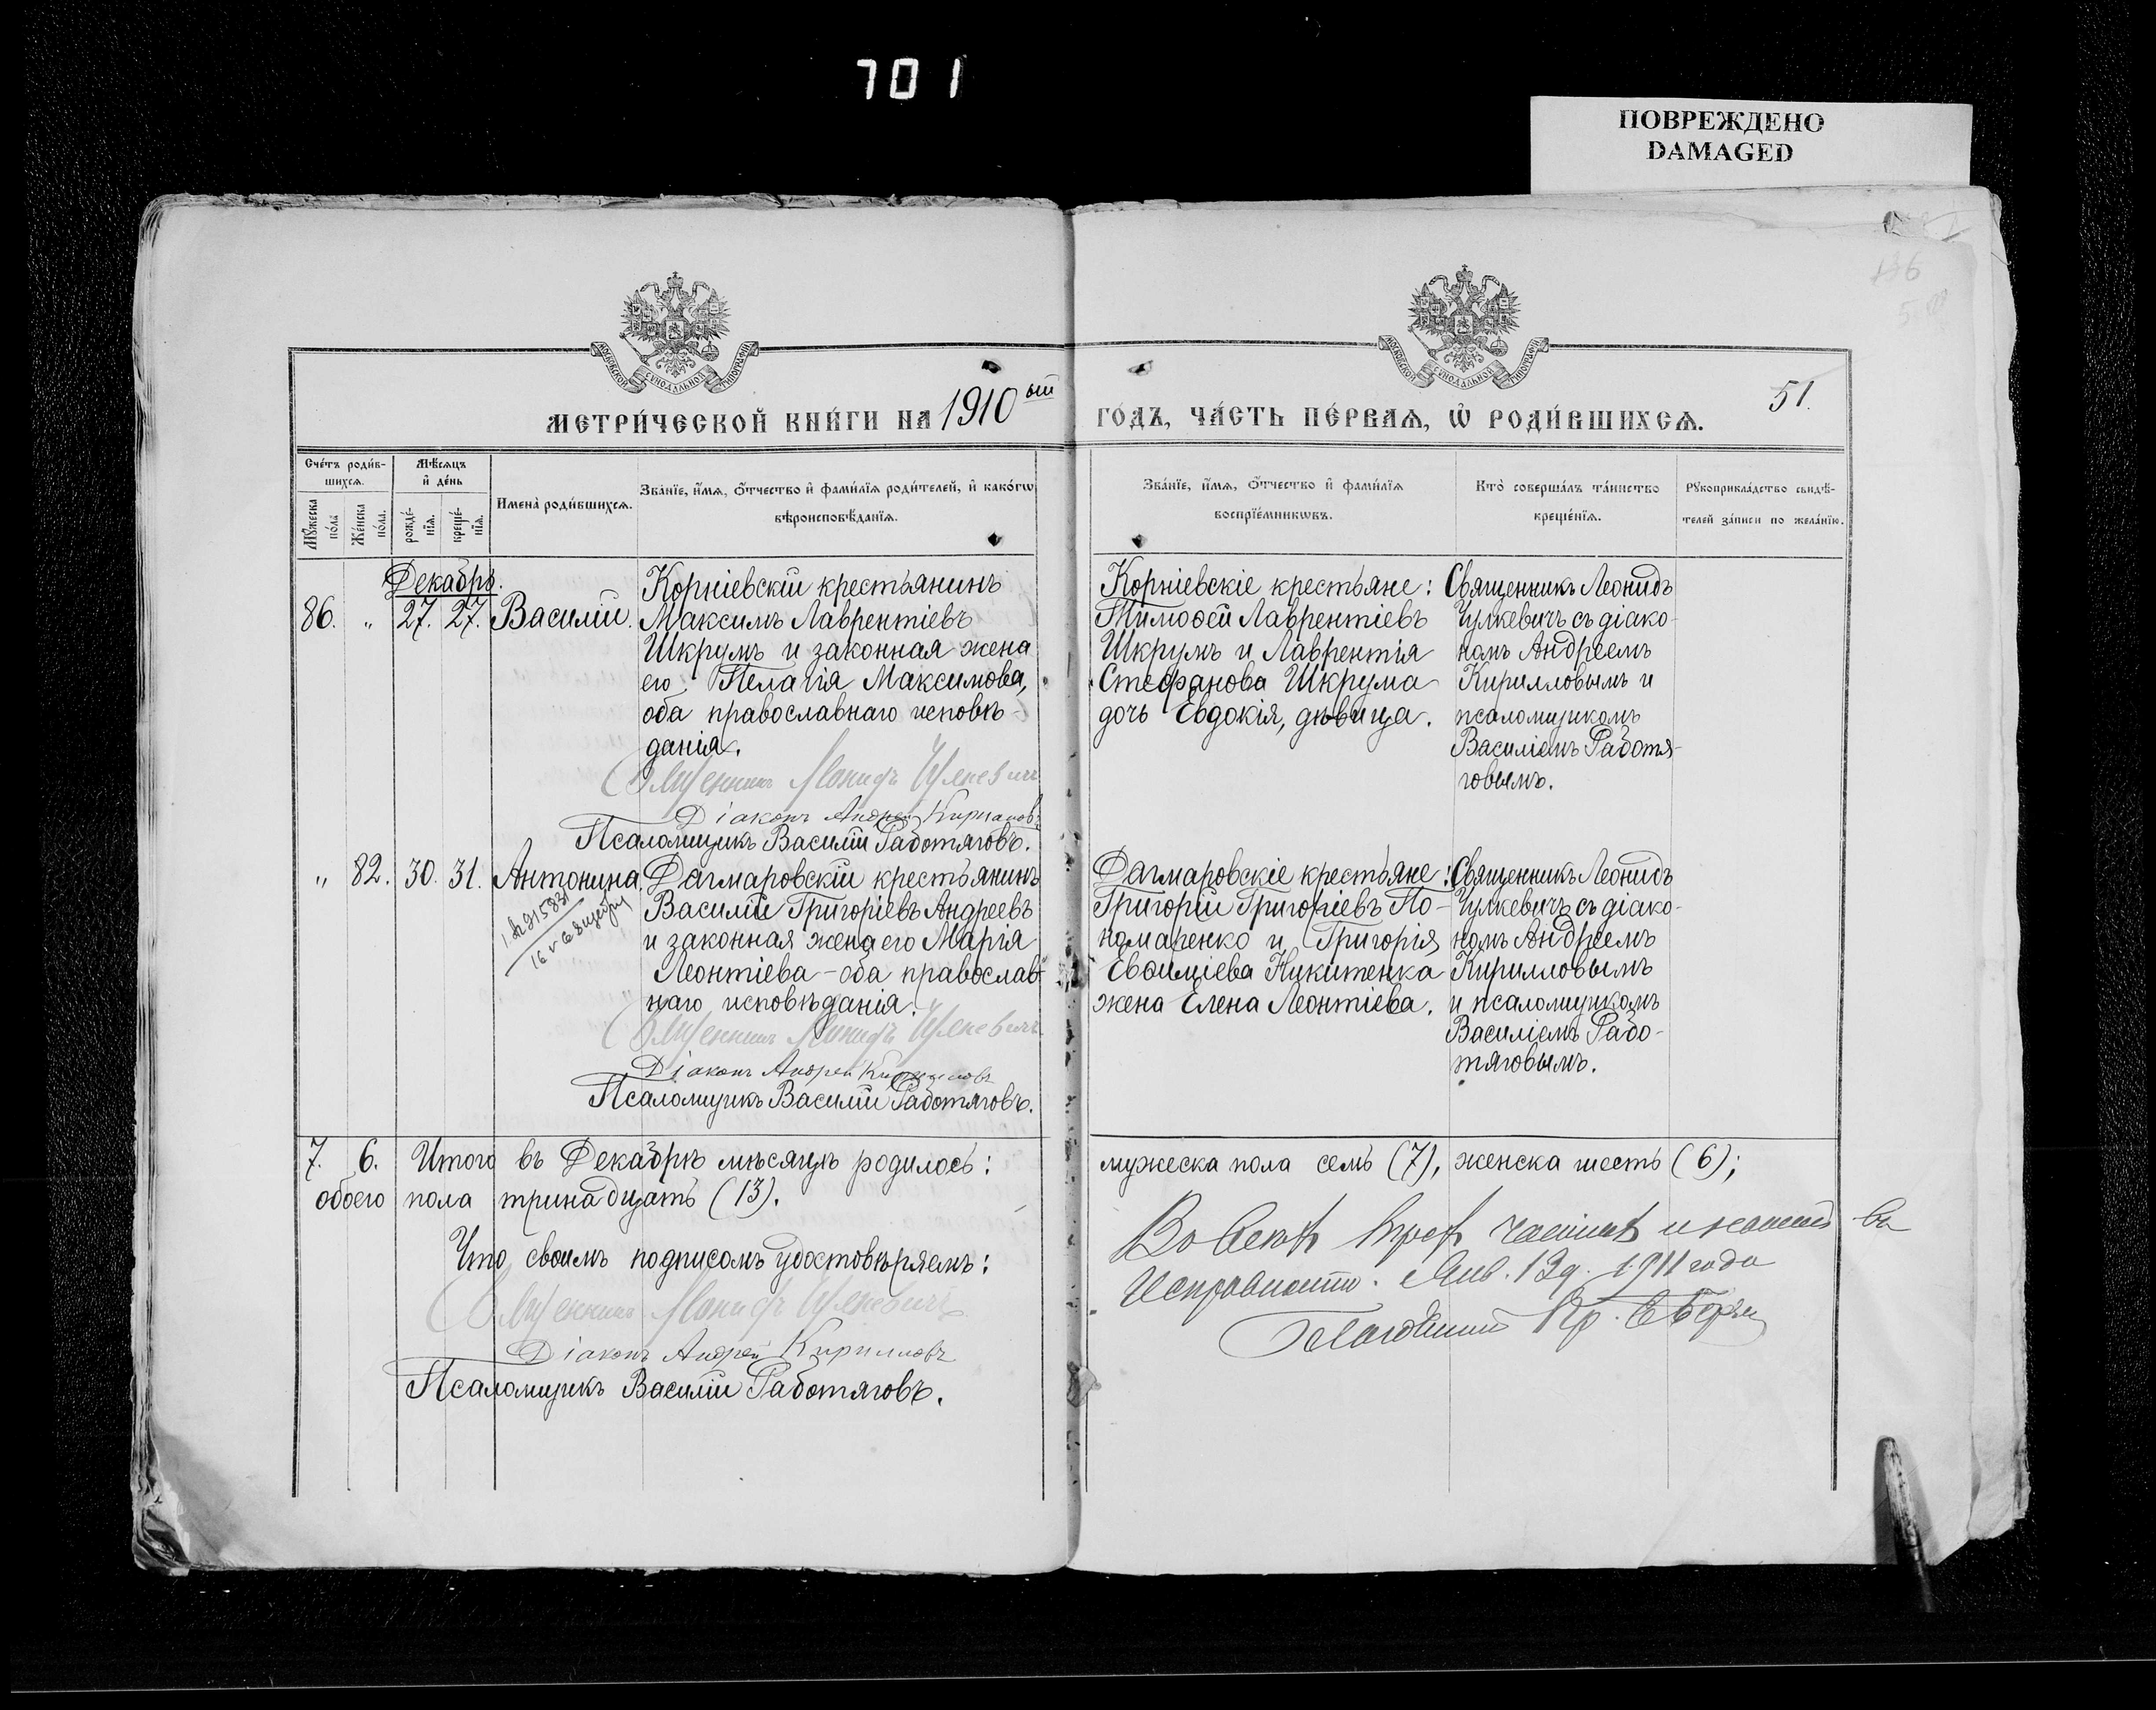 701
ПОВРЕЖДЕНО
DAMAGED
МОСКОВСКОЙ СѴНОДАЛЬНОЙ ТИПОГРАФІИ
МОСКОВСКОЙ СѴНОДАЛЬНОЙ ТИПОГРАФІИ
136
МЕТРИ́ЧЕСКОЙ КНИ́ГИ НА 1910ый ГО́ДЪ, ЧА́СТЬ ПЕ́РВАѦ, Ѡ҆ РОДИ́ВШИХСѦ. 51.
Сче́тъ роди́в-
шихсѧ.
Мꙋ́жеска по́ла
Же́нска по́ла.
Мѣ́сѧцъ и҆ де́нь
рожде́-нїѧ.
креще́-нїѧ.
Имена̀ роди́вшихсѧ.
Зва́нїе, и҆́мѧ, ѻ҆́тчество и҆ фами́лїѧ роди́телей, и҆ како́гѡ
вѣроисповѣ́данїѧ.
Зва́нїе, и҆́мѧ, ѻ҆́тчество и҆ фами́лїѧ
воспрїе́мникѡвъ.
Кто̀ соверша́лъ та́инство
креще́нїѧ.
Рꙋкоприкла́дство свидѣ́-
телей за́писи по жела́нїю.
Декабрь.
86. „ 27. 27. Василій.
Корніевскій крестьянинъ
Максимъ Лаврентіевъ
Шкрумъ и законная жена
его Пелагія Максимова,
оба православнаго исповѣ-
данія.
Священникъ Леонидъ Чулкевичъ
Діаконъ Андрей Кирилловъ
Псаломщикъ Василій Работяговъ.
Корніевскіе крестьяне:
Тимоѳей Лаврентіевъ
Шкрумъ и Лаврентія
Стефанова Шкрума
дочь Евдокія, дѣвица.
Священникъ Леонидъ
Чулкевичъ съ діако-
номъ Андреемъ
Кирилловымъ и
псаломщикомъ
Василіемъ Работя-
говымъ.
„ 82. 30. 31. Антонина.
Дагмаровскій крестьянинъ
Василій Григоріевъ Андреевъ
и законная жена его Марія
Леонтіева - оба православ-
наго исповѣданія.
Священникъ Леонидъ Чулкевичъ
Діаконъ Андрей Кирилловъ
Псаломщикъ Василій Работяговъ.
Дагмаровскіе крестьяне:
Григорій Григоріевъ По-
номаренко и Григорія
Евѳиміева Никитенка
жена Елена Леонтіева.
Священникъ Леонидъ
Чулкевичъ съ діако-
номъ Андреемъ
Кирилловымъ
и псаломщикомъ
Василіемъ Рабо-
тяговымъ.
7. 6. Итого въ Декабрѣ мѣсяцѣ родилось: мужеска пола семь (7), женска шесть (6);
обоего пола тринадцать (13).
Что своимъ подписомъ удостовѣряемъ:
Священникъ Леонидъ Чулкевичъ
Діаконъ Андрей Кирилловъ
Псаломщикъ Василій Работяговъ.
Во всѣхъ трехъ частяхъ въ
исправности. Янв. 12д. 1911 года
Благочинный Пр.